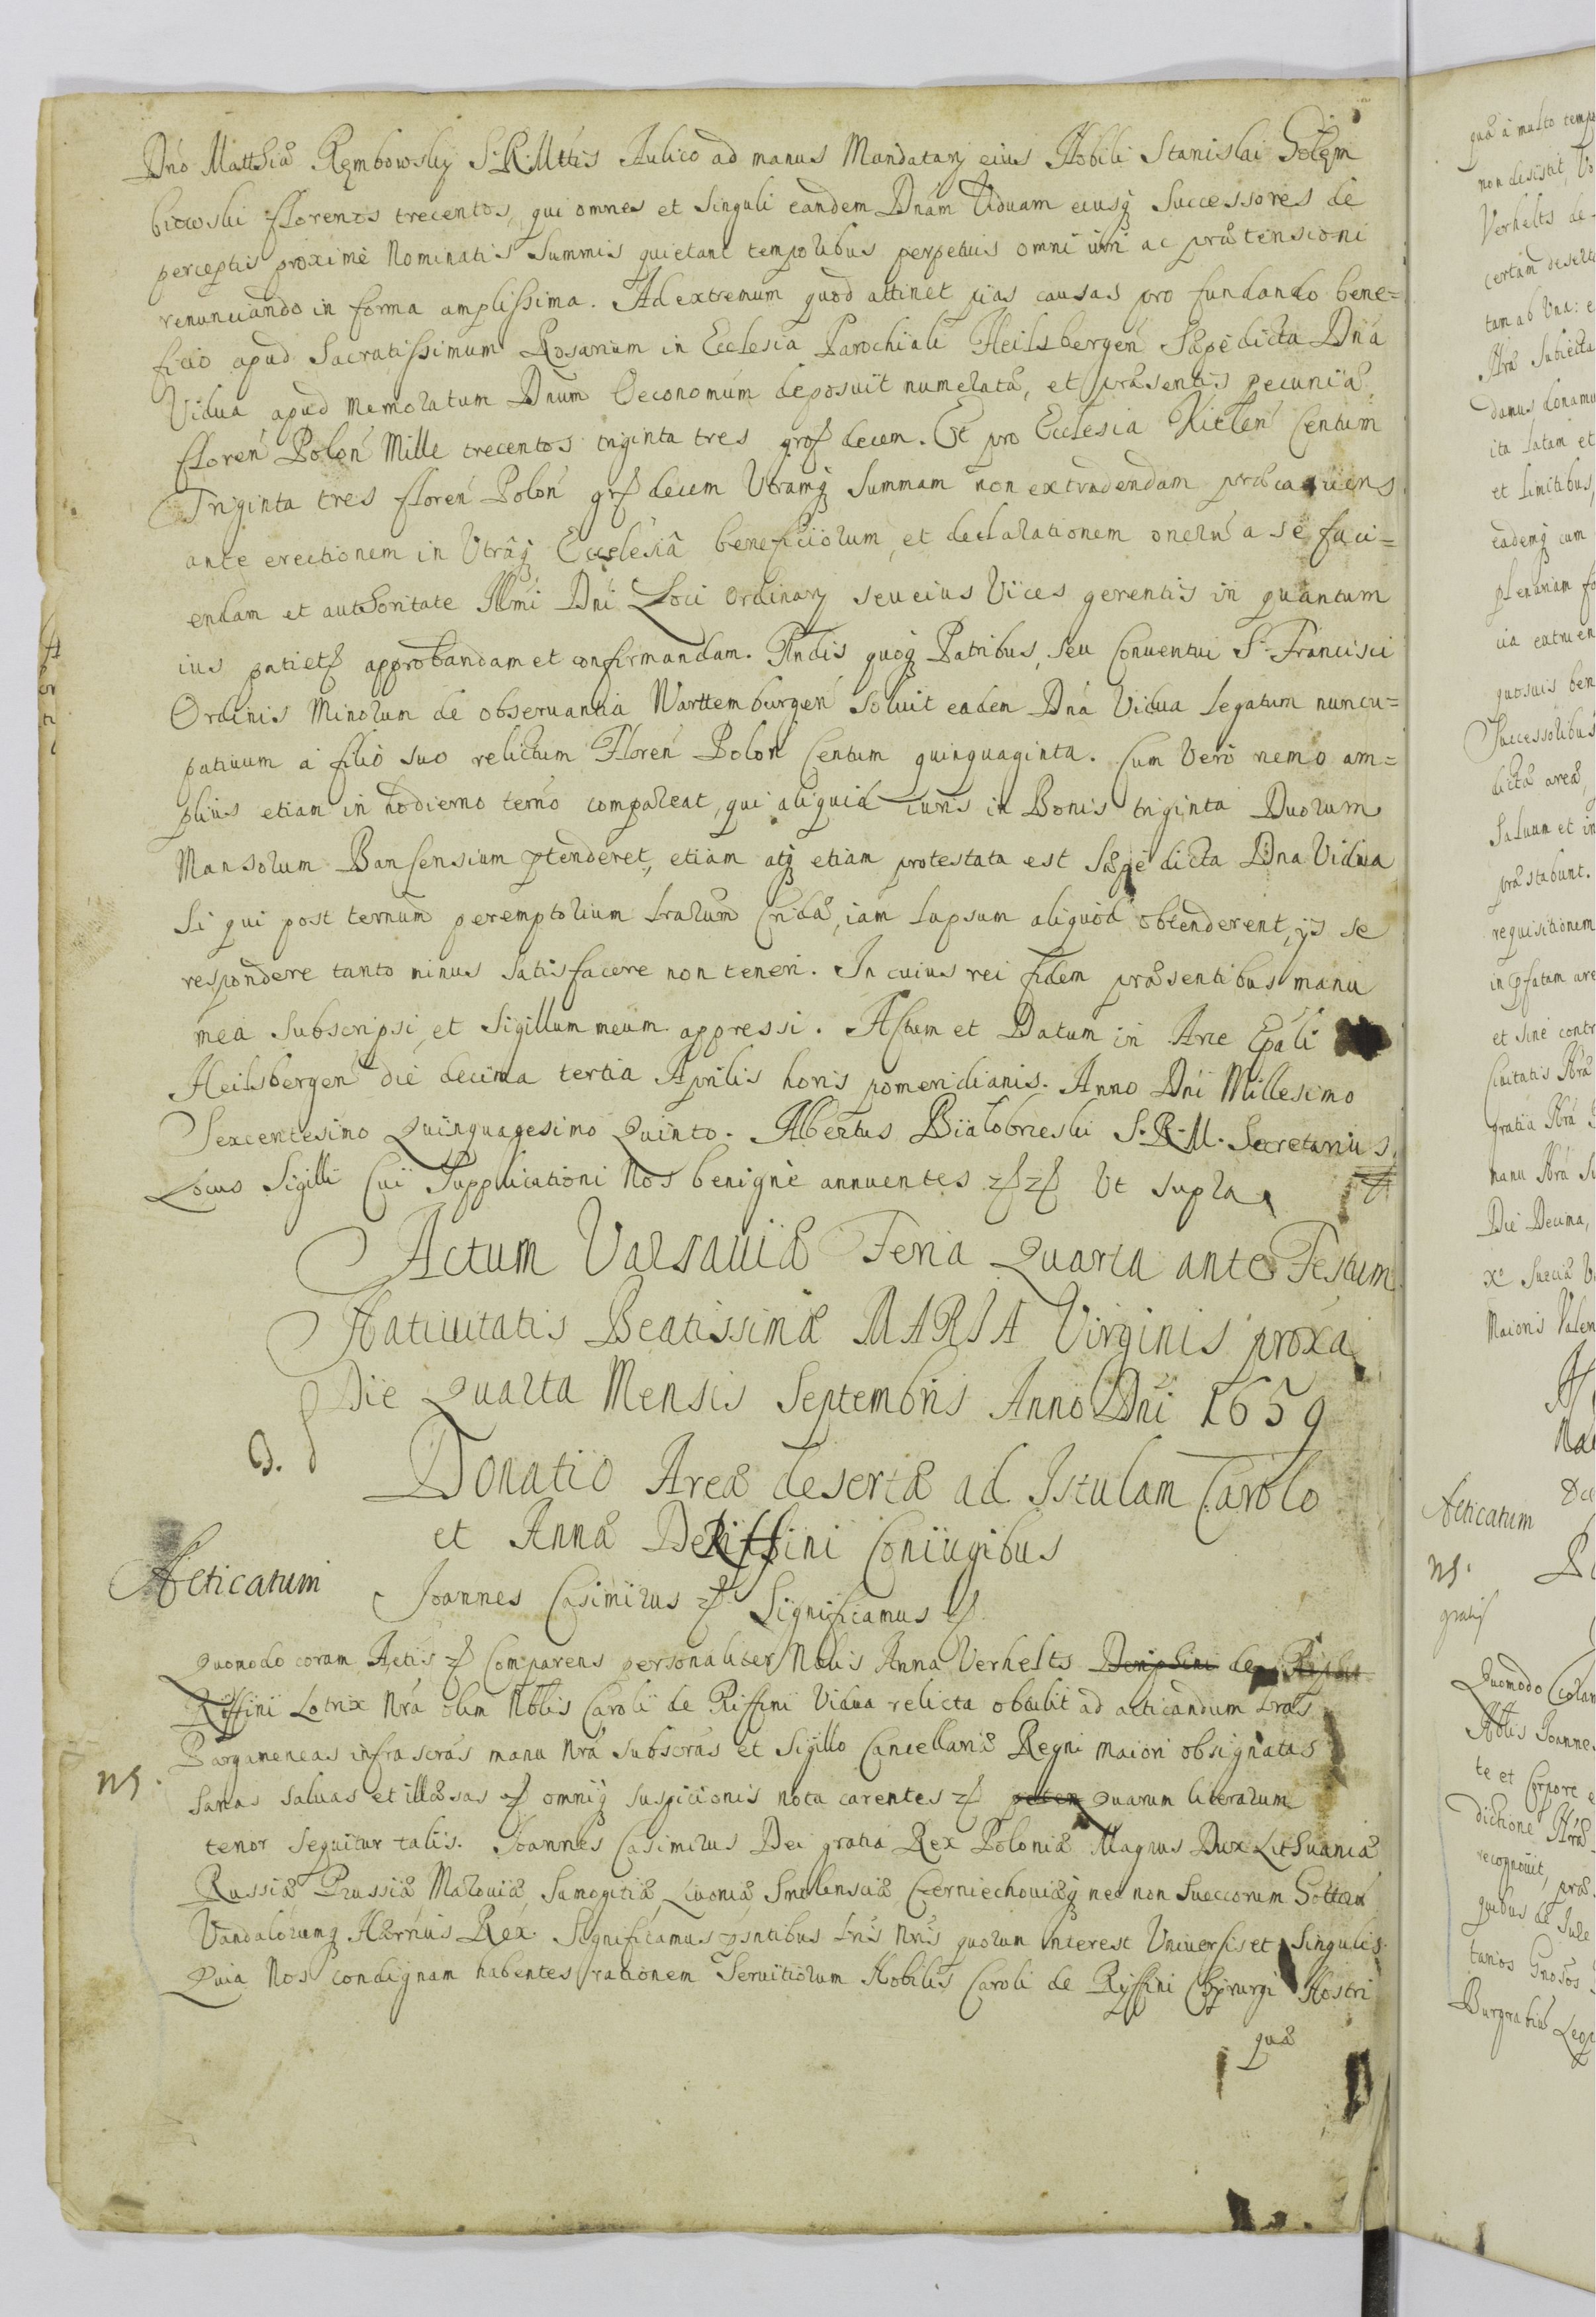 Dno Matthiæ Rembowsky S. R. Mttis Aulico ad manus Mandatarij eius Nobili Stanislai Golem
biowski florenos trecentos, qui omnes et singuli eandem Dnam Viduam eiusq Successores de
perceptis proximè nominatis Summis quietant temporibus perpetuis omni iuri ac prætensioni
renunciando in forma amplissima. Ad extremum quod attinet pias causas pro fundando bene=
ficio apud Sacratissimum Rosarium in Ecclesia Parochiali Heilsbergen Sæpè dicta Dna
Vidua apud memoratum Dnum Oeconomum deposuit numeratâ, et præsentis pecuniâ
floren Polon Mille trecentos triginta tres gros decem. Et pro Ecclesia Kitlen Centum
Triginta tres floren Polon grs decem Utramq Summam non extradendam præcauens
ante erectionem in Utrâq Ecclesiâ beneficiorum, et declarationem onerum a se faci=
endam et authoritate Illmi Dni Loci Ordinarij seu eius Vices gerentis in quantum
ius patietr approbandam et confirmandam. Pndis quoq Patribus, seu Conuentui S. Francisci
Ordinis Minorum de obseruantia Warttemburgen soluit eadem Dna Vidua legatum nuncu=
patiuum à filio suo relictum Floren Polon Centum quinquaginta. Cum Verò nemo am=
plius etiam in hodierno termo compareat, qui aliquid iuris in Bonis triginta Duorum
Mansorum Bansensium ptenderet, etiam atq etiam protestata est Sæpè dicta Dna Vidua
Si qui post ternum peremptorium lrarum Cridæ, iam lapsum aliquod obtenderent, ijs se
respondere tanto minus satisfacere non teneri. In cuius rei fidem præsentibus manu
mea subscripsi, et sigillum meum appressi. Actum et Datum in Arce Epali
Heilsbergen die decima tertia Aprilis horis pomeridianis. Anno Dni Millesimo
Sexcentesimo Quinquagesimo Quinto. Albertus Białobrzeski S. R. M. Secretarius.
Locus Sigilli Cui Supplicationi Nos benignè annuentes etc etc Ut supra
Actum Varsauiæ Feria Quarta ante Festum
Natiuitatis Beatissimæ MARIA Virginis proxa
Die Quarta Mensis Septembris Anno Dni 1659
Donatio Areæ desertæ ad Istulam Carolo
et Annæ De Riffini Coniugibus
Acticatum
Joannes Casimirus etc Significamus etc
Quomodo coram Actis etc Comparens personaliter Nblis Anna Verhelts de
Riffini Lotrix Nra olim Nblis Caroli de Riffini Vidua relicta obtulit ad acticandum lras
Pargameneas infrascras manu nra subscras et Sigillo Cancellariæ Regni maiori obsignatas
NS.
Sanas saluas et illæsas etc omniq suspicionis nota carentes etc Quarum literarum
tenor sequitur talis. Joannes Casimirus Dei gratia Rex Poloniæ Magnus Dux Lithuaniæ
Russiæ Prussiæ Mazouiæ Samogitiæ Liuoniæ Smolensciæ Czerniechouiæq nec non Suecorum Gottor
Vandalorumq Hærrius Rex. Significamus psntibus lris nris quorum interest Uniuersis et Singulis.
Quia Nos condignam habentes rationem Seruitiorum Nobilis Caroli de Riffini Chyrurgi Nostri
quæ
quâ à multo temp
non desistit,
Verhelts de
certam desert
tam ab Una:
Nra subiecta
damus donamu
ita latam et
et limitibus
eademq cum
plenariam
Successoribus
dictâ areâ
Saluum et in
præstabunt.
requisitionem
in pfatam are
et sine contr
Ciuitatis Nræ
gratia Nra
manu Nra Su
Die Decima,
Maioris Valen
Acticatum
NS.
gratis
Quomodo
Nblis Joannes
te et Corpore
dictione Nra
recognouit, præ
quibus de Jure